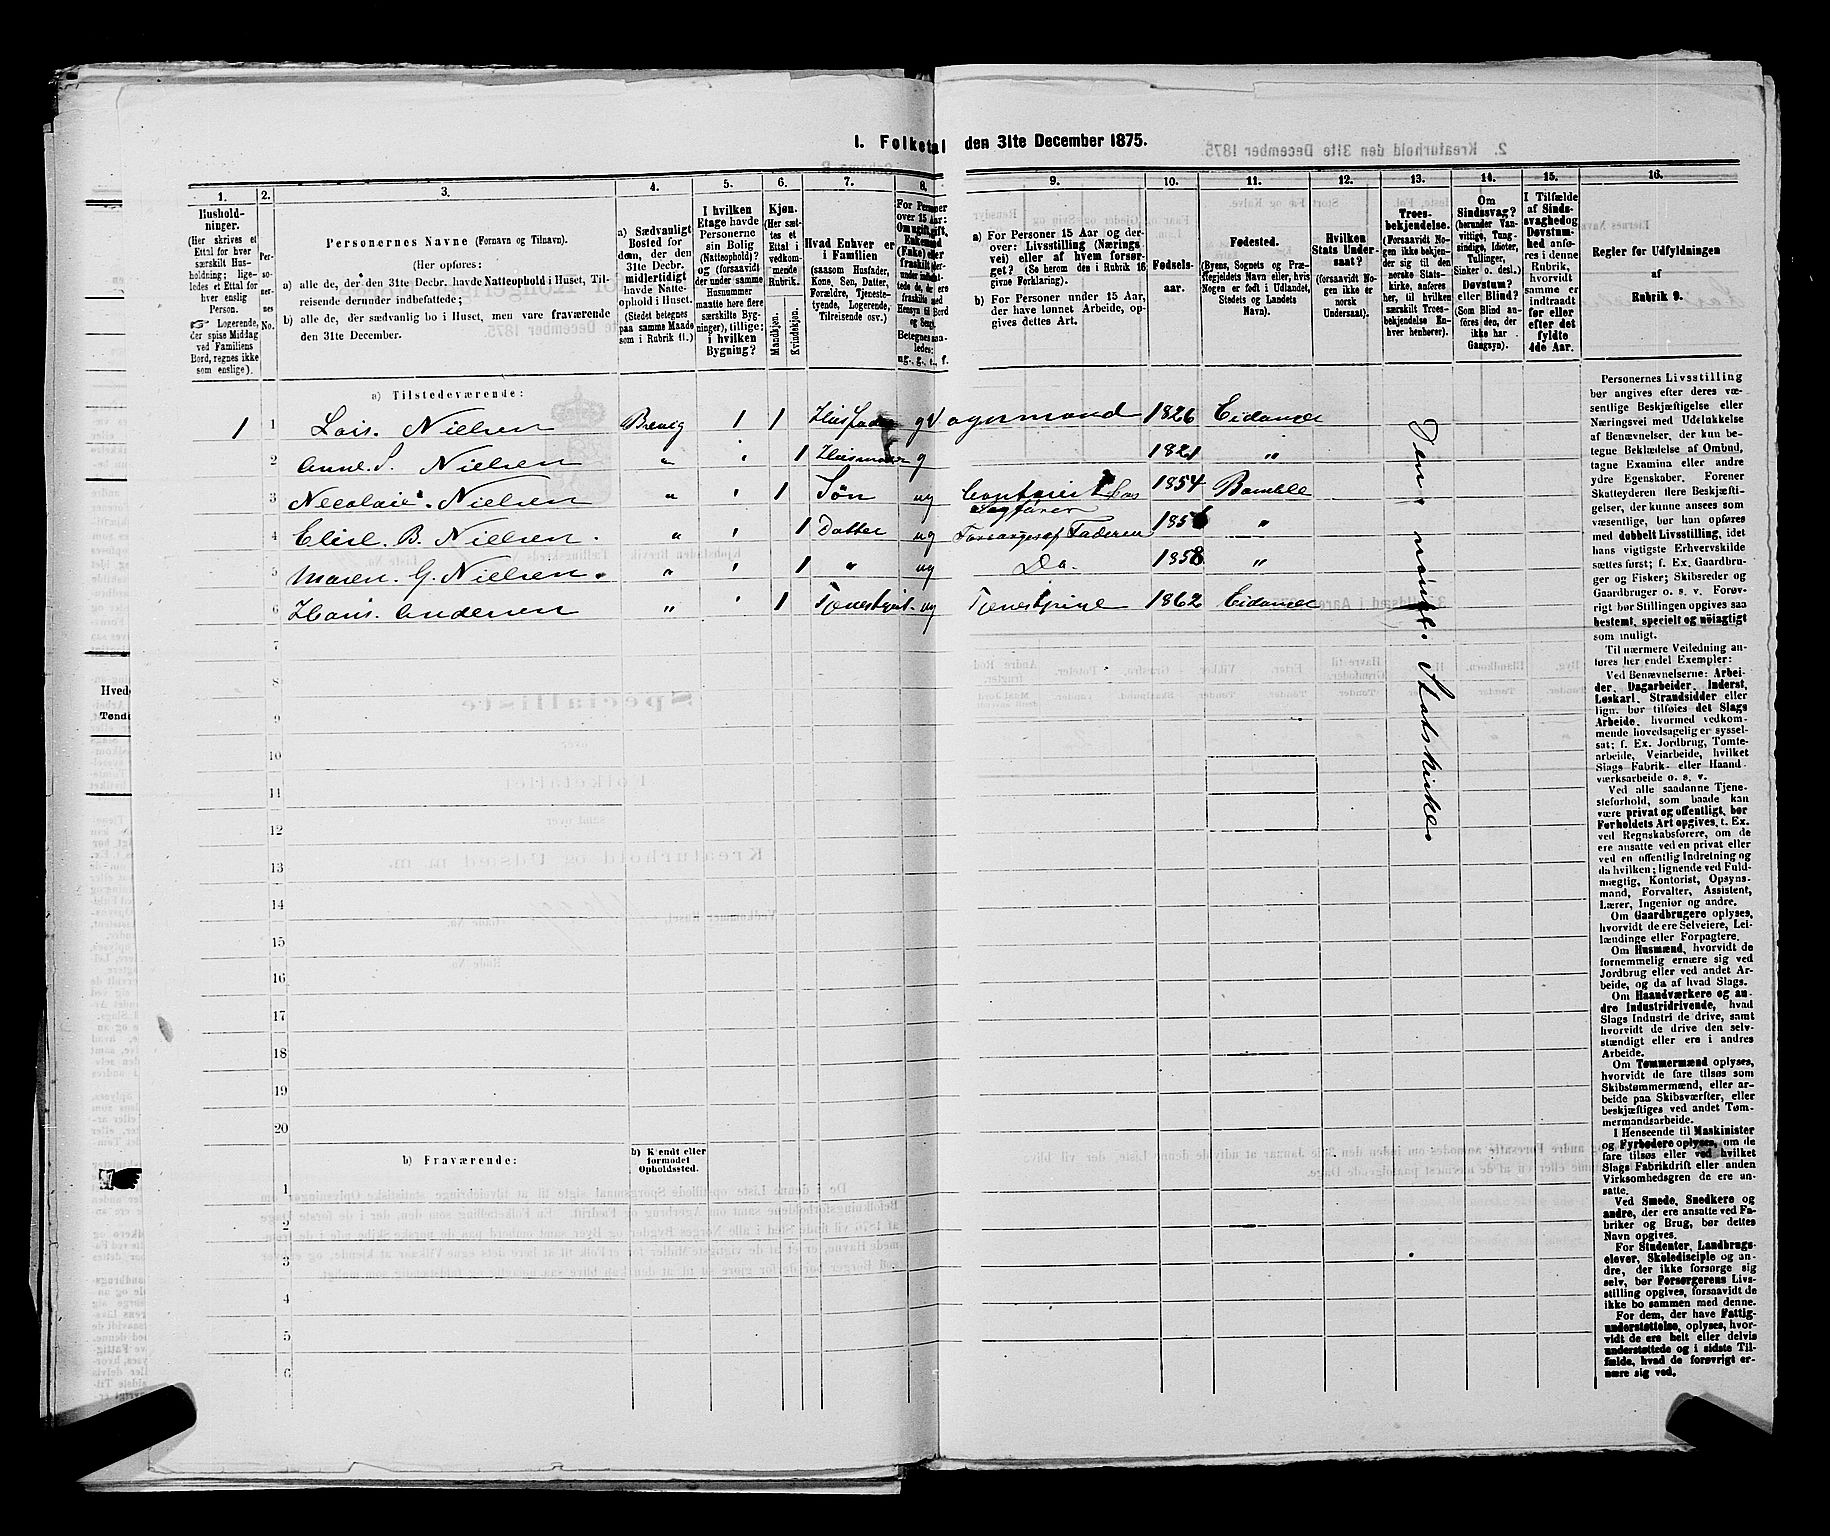 1. Folketal den 31te December 1875.
1. 2. 3. 4. 5. 6. 7. 8. 9. 10. 11. 12. 13. 14. 15. 16.
Hushold-
ninger.
(Her skrives et
Ettal for hver
særskilt Hus-
holdning; lige-
ledes et Ettal for
hver enslig
Person.
☞ Logerende,
der spise Middag
ved Familiens
Bord, regnes ikke
som enslige).
Per-
so-
ner-
nes
No.
Personernes Navne (Fornavn og Tilnavn).
(Her opføres:
a) alle de, der den 31te Decbr. havde Natteophold i Huset, Til-
reisende derunder indbefattede;
b) alle de, der sædvanlig bo i Huset, men vare fraværende
den 31te December.
a) Sædvanligt
Bosted for
dem, der den
31te Decbr.
midlertidigt
havde Natte-
ophold i Huset.
(Stedet betegnes
paa samme Maade
som i Rubrik 11.)
I hvilken
Etage havde
Personerne
sin Bolig
(Natteophold)?
og (forsaavidt
der under samme
Husnummer
maatte høre flere
særskilte Byg-
ninger), tillige:
i hvilken
Bygning?
Kjøn.
(Her sæt-
tes et
Ettal i
vedkom-
mende
Rubrik.)
Mandkjøn.
Kvindekjøn.
Hvad Enhver er
i Familien
(saasom Husfader,
Kone, Søn, Datter,
Forældre, Tjeneste-
tyende, Logerende,
Tilreisende osv.)
For Personer
over 15 Aar:
Om ugift, gift,
Enkemand
(Enke) eller
fraskilt
Betegnes saa-
ledes:
ug., g., e., f.
a) For Personer 15 Aar og der-
over: Livsstilling (Nærings
vei) eller af hvem forsør-
get? (Se herom den i Rubrik 16
givne Forklaring.)
b) For Personer under 15 Aar,
der have lønnet Arbeide, op-
gives dettes Art.
Fødsels-
aar.
Fødested.
(Byens, Sognets og Præ-
stegjeldets Navn eller, hvis
Nogen er født i Udlandet,
Stedets og Landets
Navn).
Hvilken
Stats Under-
saat?
(forsaavidt No-
gen ikke er
norsk
Undersaat).
Troes-
bekjendelse.
(Forsaavidt No-
gen ikke bekjen-
der sig til den
norske Stats-
kirke, anføres
her, til hvilken
særskilt Troes-
bekjendelse En-
hver henhører).
Om
Sindssvag?
(herunder Van-
vittige, Tung-
sindige, Idioter,
Tullinger,
Sinker o. desl.)
Døvstum?
eller Blind?
(Som Blind an-
føres den, der
ikke har
Gangsyn).
I Tilfælde
af Sinds-
svaghed og
Døvstum-
hed anfø-
res i denne
Rubrik,
hvorvidt
samme er
indtraadt
før eller
efter det
fyldte
4de Aar.
Regler for Udfyldningen
af
Rubrik 9.
a) Tilstedeværende:
1 1 Lars. Nielsen Brevig 1 1 Husfader g Vognmand 1826 Eidanger
2 Anne. S. Nielsen " " 1 Husmoder g 1821 "
3 Nicolai. Nielsen " " 1 Søn ug Contorist hos Sagfører 1854 Bamble
4 Elise. B. Nielsen. " " 1 Datter ug Forsørges af Faderen 185 "
5 Maren. G. Nielsen. " " 1 " ug Do. 1858 "
6 Hans. Andersen " " 1 ug 1862 Eidanger
Den norske Statskirke
7
8
9
10
11
12
13
14
15
16
17
18
19
20
b) Fraværende:
b) Kjendt eller
formodet
Opholdssted.
1
2
3
4
5
6
Personernes Livsstilling
bør angives efter deres væ-
sentlige Beskjæftigelse eller
Næringsvei med Udelukkelse
af Benævnelser, der kun be-
tegne Bekladelse af Ombud,
tagne Examina eller andre
ydre Egenskaber. Forener
Skatteyderen flere Beskjæfti-
gelser, der kunne ansees som
væsentlige, bør han opføres
med dobbelt Livsstilling, idet
hans vigtigste Erhvervskilde
sættes først; f. Ex. Gaardbru-
ger og Fisker; Skibsreder og
Gaardbruger o. s. v. Forøv-
rigt bør Stillingen opgives saa
bestemt, specielt og nøiagtigt
som muligt.
Til nærmere Veiledning an-
føres her endel Exempler:
Ved Benævnelserne: Arbei-
der, Dagarbeider, Inderst,
Løskarl, Strandsidder eller
lign. bør tilføies det Slags
Arbeide, hvormed vedkom-
mende hovedsagelig er syssel-
sat; f. Ex. Jordbrug, Tomte-
arbeide, Veiarbeide, hvilket
Slags Fabrik- eller Haand-
værksarbeide o. s. v.
Ved alle saadanne Tjene-
steforhold, som baade kan
være privat og offentligt, bør
Forholdets Art opgives, t. Ex.
ved Regnskabsførere, om de
ere ansatte ved en privat eller
ved en offentlig Indretning og
da hvilken; lignende ved Fuld-
mægtig, Kontorist, Opsyns-
mand, Forvalter, Assistent,
Lærer, Ingeniør og andre.
Om Gaardbrugere oplyses,
hvorvidt de ere Selveiere, Lei-
lændinge eller Forpagtere.
Om Husmænd, hvorvidt de
fornemmelig ernære sig ved
Jordbrug eller ved andet Ar-
beide, og da af hvad Slags.
Om Haandværkere og an-
dre Industridrivende, hvad
Slags Industri de drive, samt
hvorvidt de drive den selv-
stændigt eller ere i andres
Arbeide.
Om Tømmermænd oplyses,
hvorvidt de fare tilsøs som
Skibstømmermænd, eller ar-
beide paa Skibsværfter, eller
beskjæftiges ved andet Tøm-
mermandsarbeide.
I Henseende til Maskinister
og Fyrbødere oplyses, om de
fare tilsøs eller ved hvilket
Slags Fabrikdrift eller anden
Virksomhedsgren de ere an-
satte.
Ved Smede, Snedkere og
andre, der ere ansatte ved Fa-
briker og Brug, bør dettes
Navn opgives.
For Studenter, Landbrugs-
elever, Skoledisciple og an-
dre, der ikke forsørge sig
selv, bør Forsørgerens Livs-
stilling opgives, forsaavidt de
ikke bo sammen med denne.
For dem, der have Fattig-
understøttelse, oplyses, hvor-
vidt de ere helt eller delvis
understøttede og i sidste Til-
fælde, hvad de forøvrigt er-
nære sig ved.